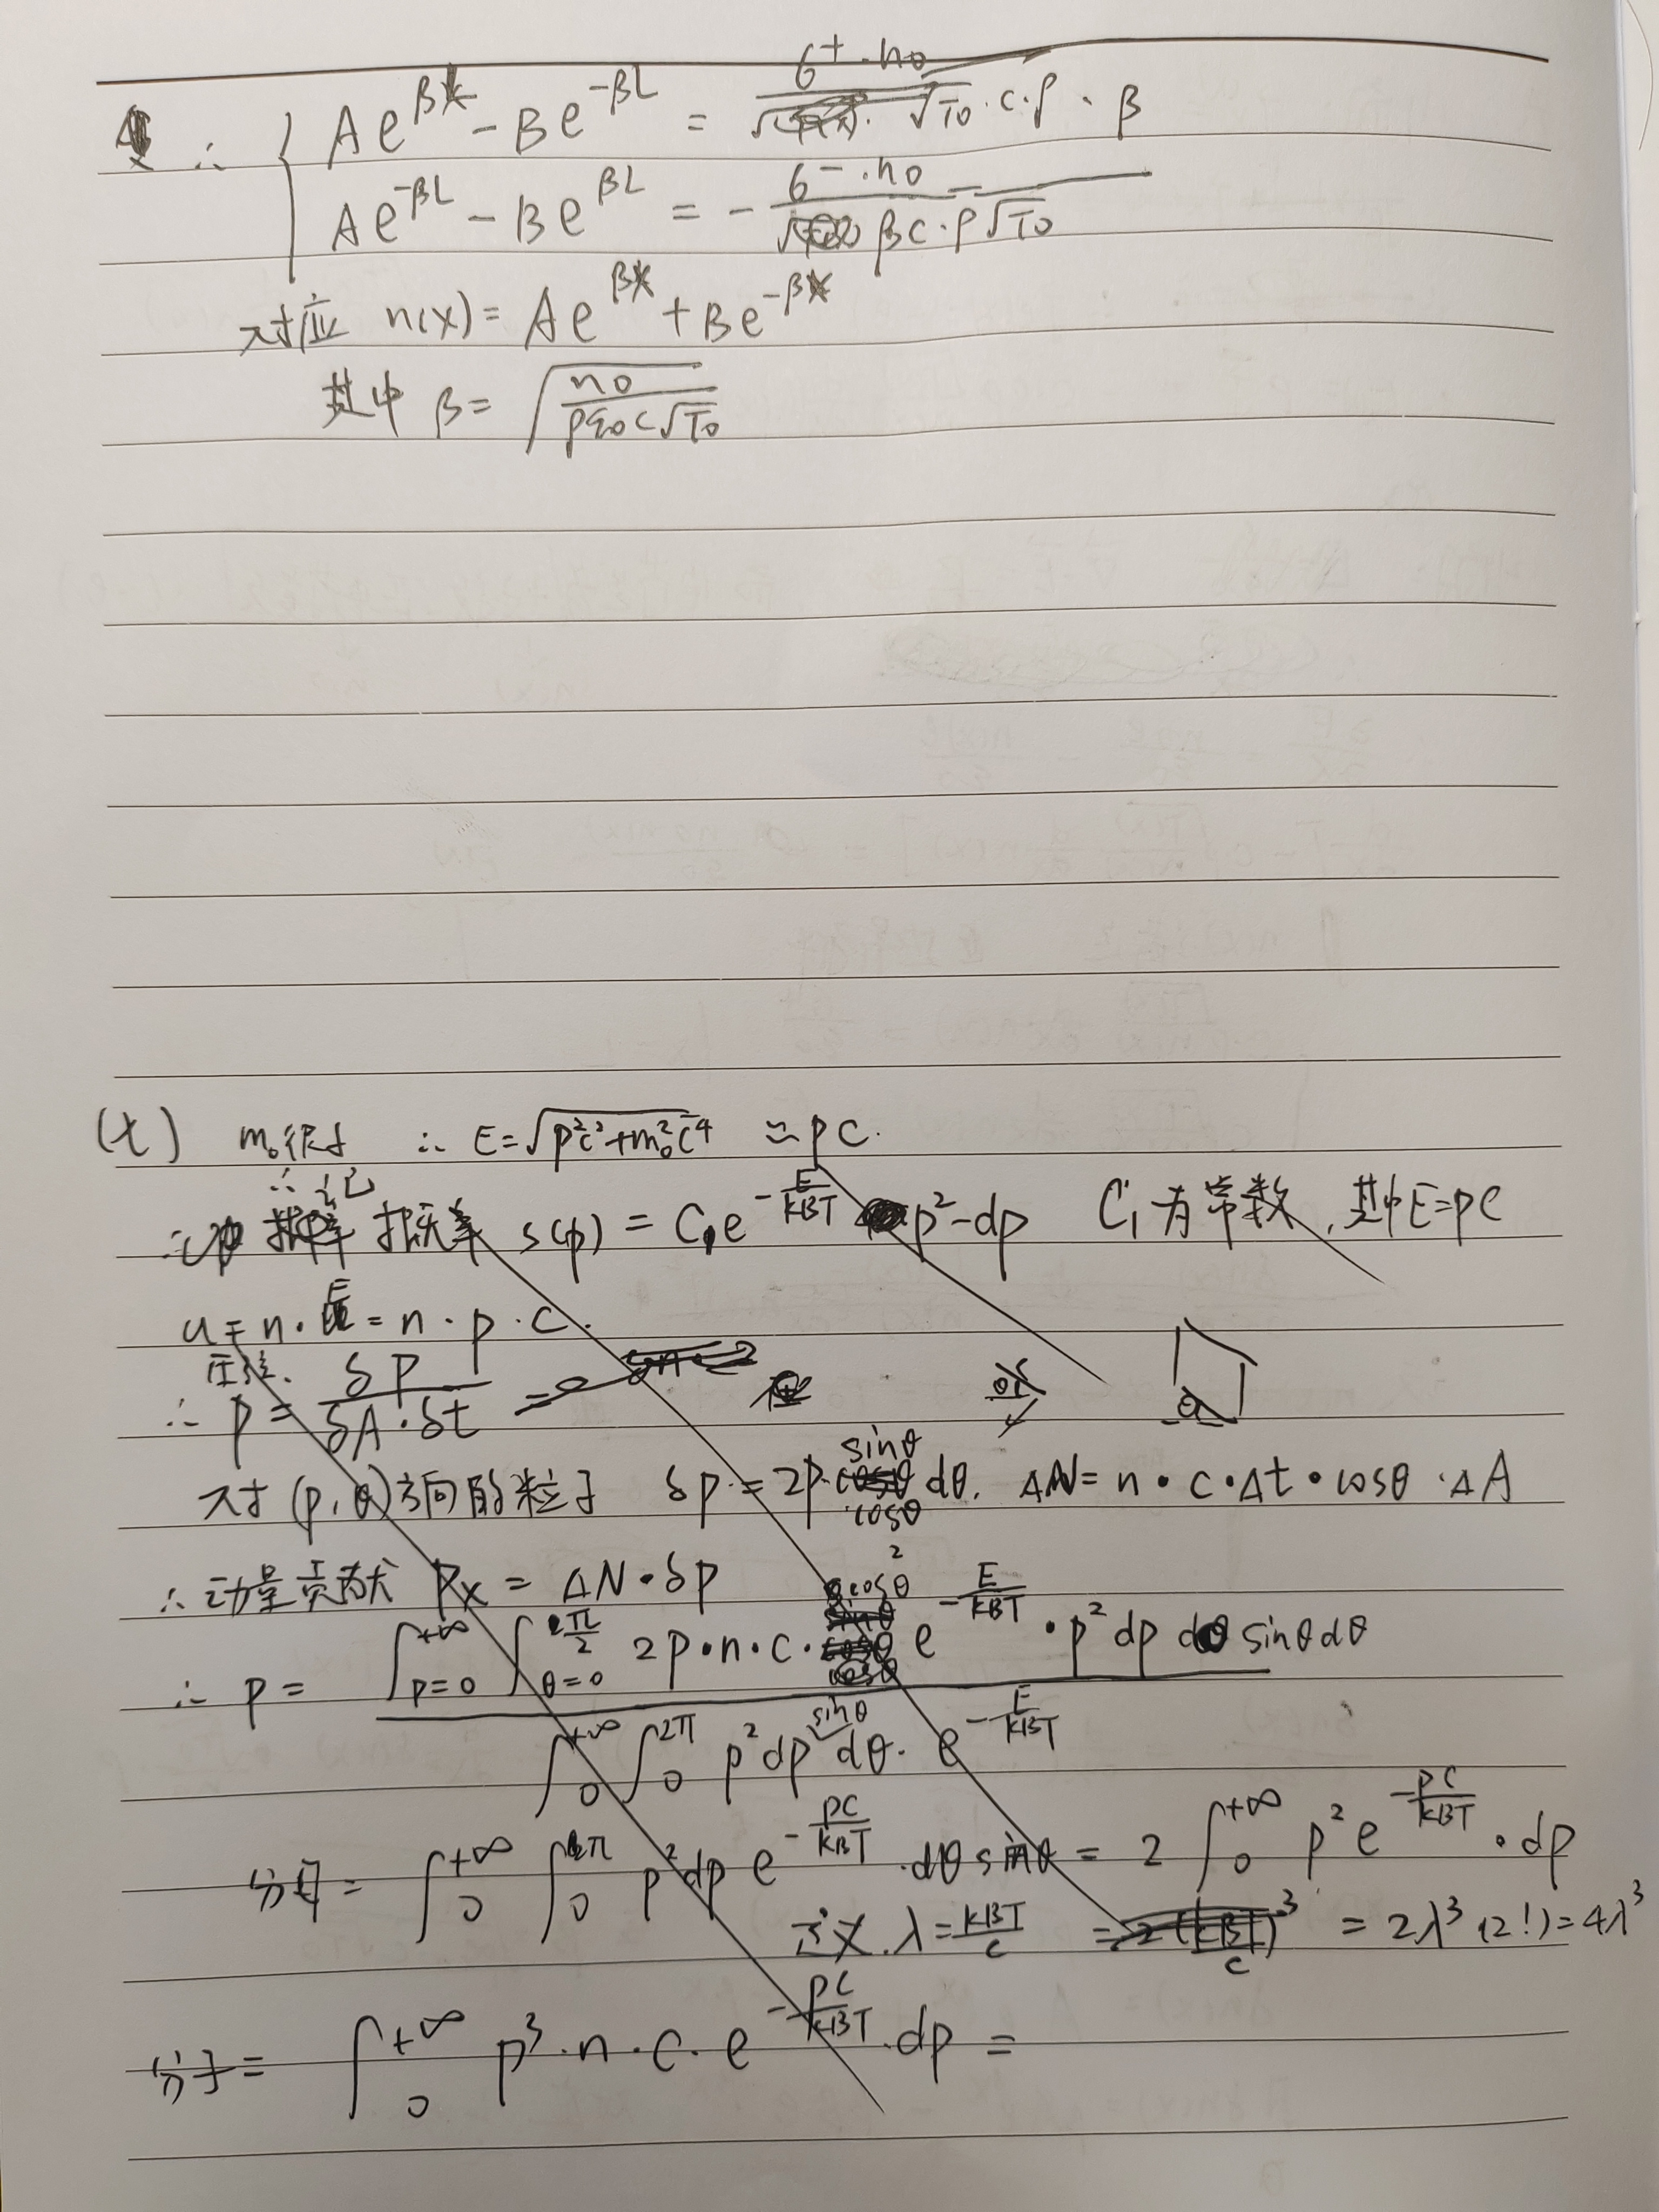 ∴ { A e^{βL} - B e^{-βL} = \frac{6^+ · n_0}{\sqrt{T_0} · c · ρ · β}
A e^{-βL} - B e^{βL} = - \frac{6^- · n_0}{β c · ρ \sqrt{T_0}}
对应 n(x) = A e^{βx} + B e^{-βx}
其中 β = \sqrt{\frac{n_0}{ρ ε_0 c \sqrt{T_0}}}
(七) m_0很小 ∴ E = \sqrt{p^2c^2 + m_0^2c^4} ≃ pc.
∴ 记
概率 s(p) = C_1 e^{-\frac{E}{k_BT}} p^2 · dp C_1 为常数, 其中E=pc
u = n · E = n · p · c.
压强.
∴ p = \frac{δp}{δA · δt} =
对 (p, θ)方向的粒子 δp = 2p · sinθ cosθ dθ. ΔN = n · c · Δt · cosθ · ΔA
∴ 动量贡献 P_x = ΔN · δp
∴ p = \frac{∫_{p=0}^{+∞} ∫_{θ=0}^{\frac{π}{2}} 2p · n · c · cosθ^2 e^{-\frac{E}{k_BT}} · p^2 dp sinθdθ}{∫_0^{+∞} ∫_0^{2π} p^2 dp sinθ dθ · e^{-\frac{E}{k_BT}}}
分母 = ∫_0^{+∞} ∫_0^{π} p^2 dp e^{-\frac{pc}{k_BT}} · dθ sinθ = 2 ∫_0^{+∞} p^2 e^{-\frac{pc}{k_BT}} · dp
定义. λ = \frac{k_BT}{c} = 2λ^3 (2!) = 4λ^3
分子 = ∫_0^{+∞} p^3 · n · c · e^{-\frac{pc}{k_BT}} · dp =